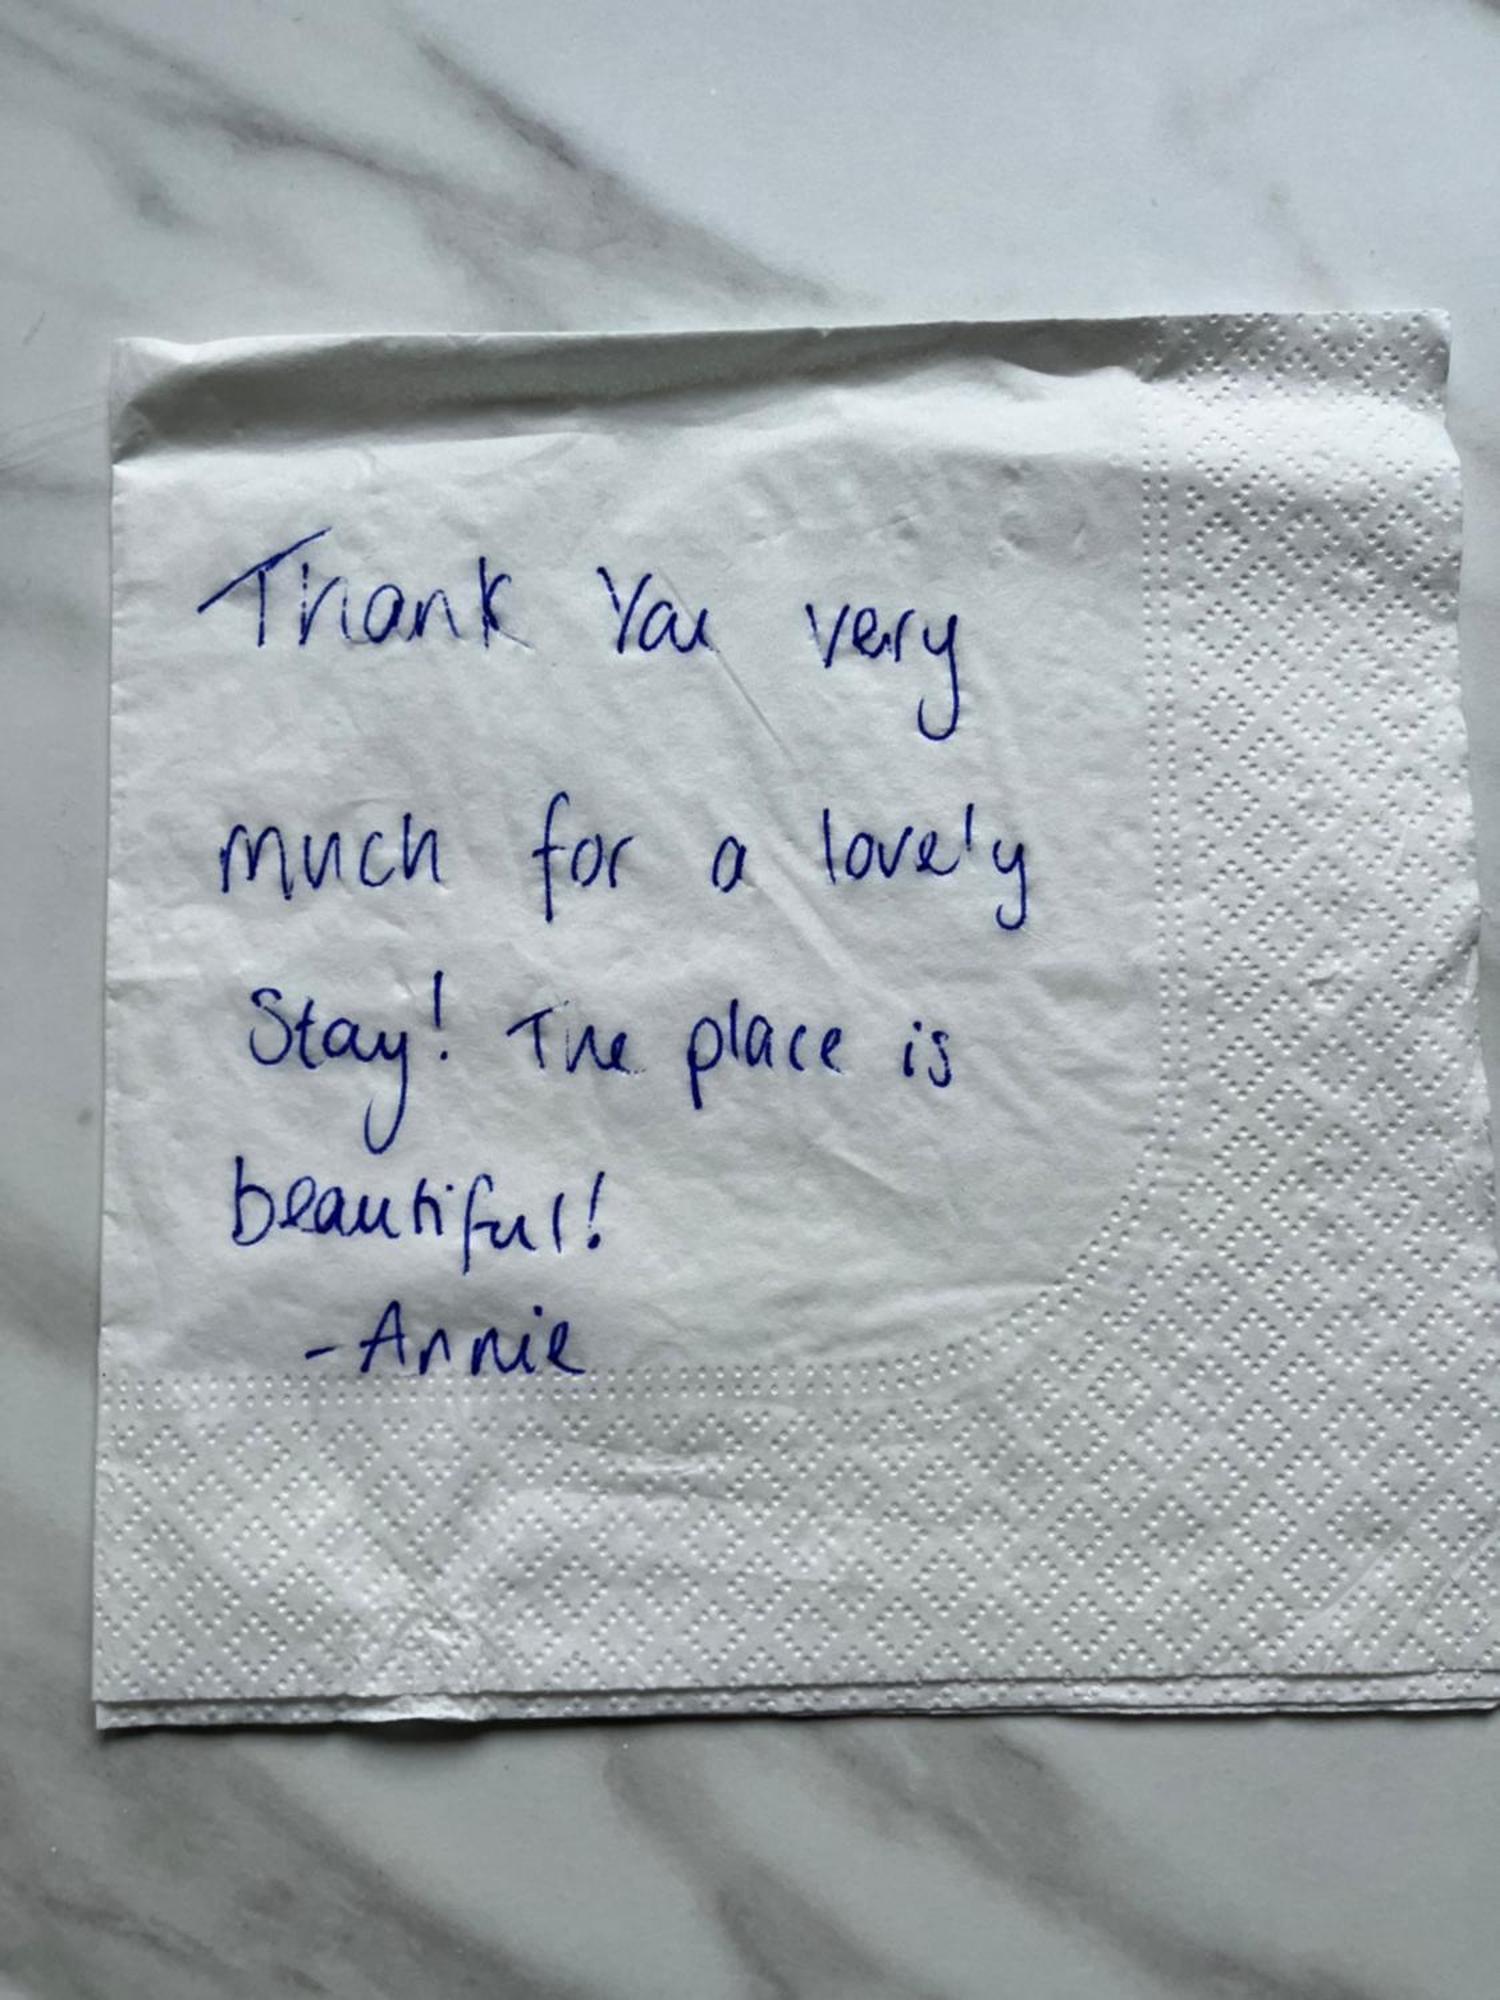 Thank You very
much for a lovely
Stay! The place is
beautiful!
-Annie